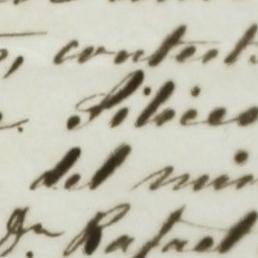 contest
Silices
del min
Dn Rafael